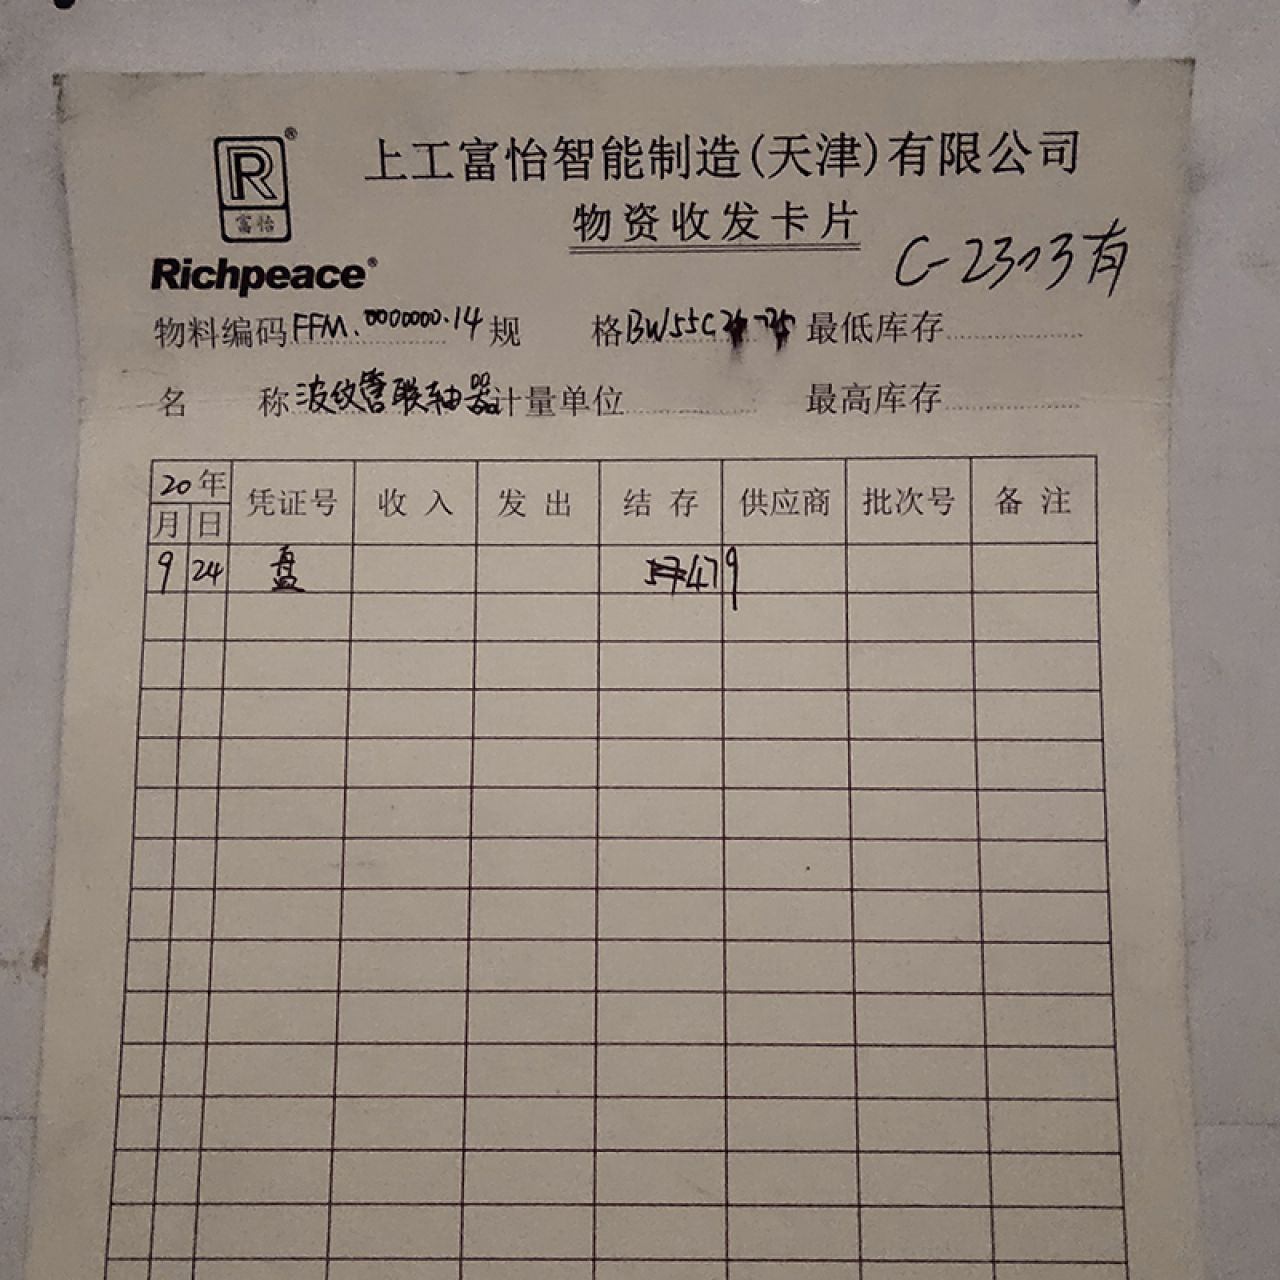 R®
富怡
Richpeace®
上工富怡智能制造(天津)有限公司
物资收发卡片
C-2303有
物料编码 FFM.0000000.14 规 格 BW55C 最低库存
名 称 波纹管联轴器 计量单位 最高库存
20年 凭证号 收入 发出 结存 供应商 批次号 备注
月 日
9 24 盘 479